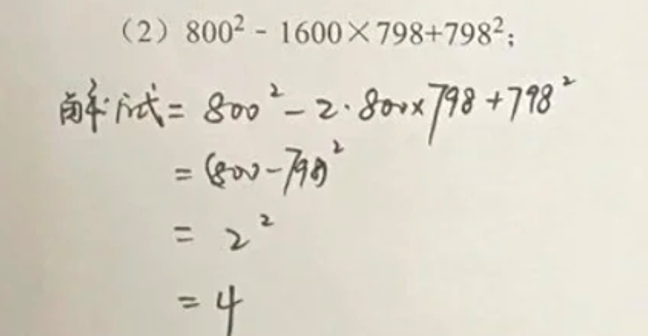 (2) 800² - 1600×798+798²;
解:原式= 800² - 2·800×798 + 798²
= (800-798)²
= 2²
= 4